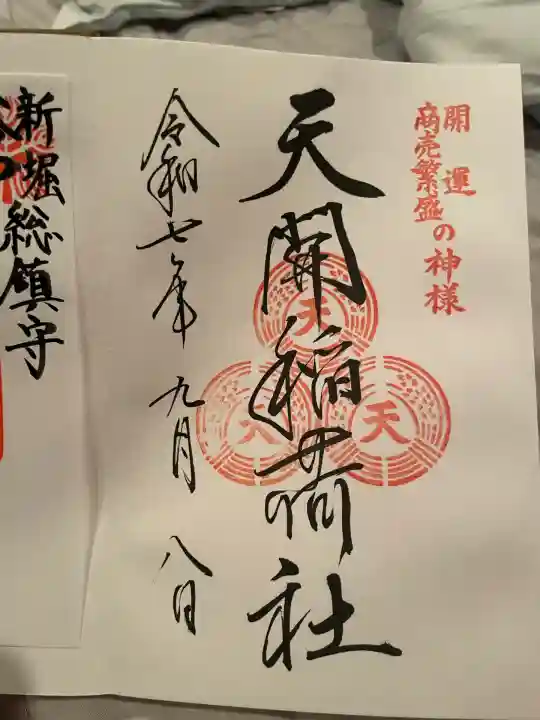 開運
商売繁盛の神様
天開稲荷社
天
天
天
令和七年九月八日
新堀総鎮守